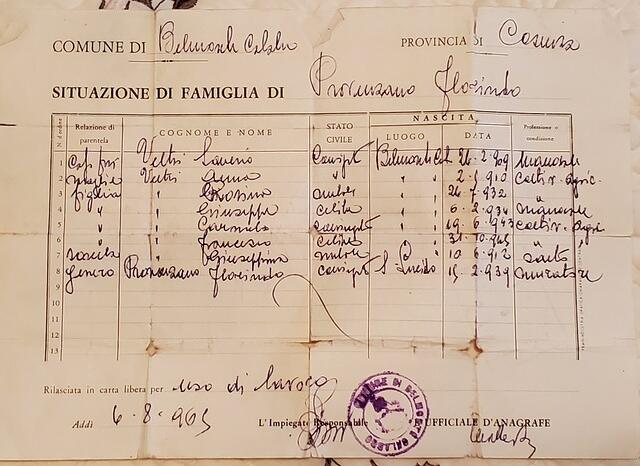 COMUNE DI Belmonte Calabro PROVINCIA DI Cosenza
SITUAZIONE DI FAMIGLIA DI Provenzano Florindo
N. d'ordine Relazione di parentela COGNOME E NOME STATO CIVILE NASCITA LUOGO DATA Professione o condizione
1 Veltri Saverio Belmonte Cal. 909 manovale
2 moglie Veltri " " " 2 910 coltiv. agric.
3 figlia " Rosina nubile " " 7 932
4 " " Giuseppe celibe " " 6 2 934 manovale
5 " " Carmela " " 19 6 943
6 " " Francesco celibe " " 31 10 945 "
7 " Giuseppina nubile " " 10 6 912 sarta
8 genero Provenzano Florindo S. Lucido 15 2 939 muratore
9
10
11
12
13
Rilasciata in carta libera per uso di lavoro
Addì 6-8-965 L'Impiegato Responsabile L'UFFICIALE D'ANAGRAFE
COMUNE DI BELMONTE CALABRO